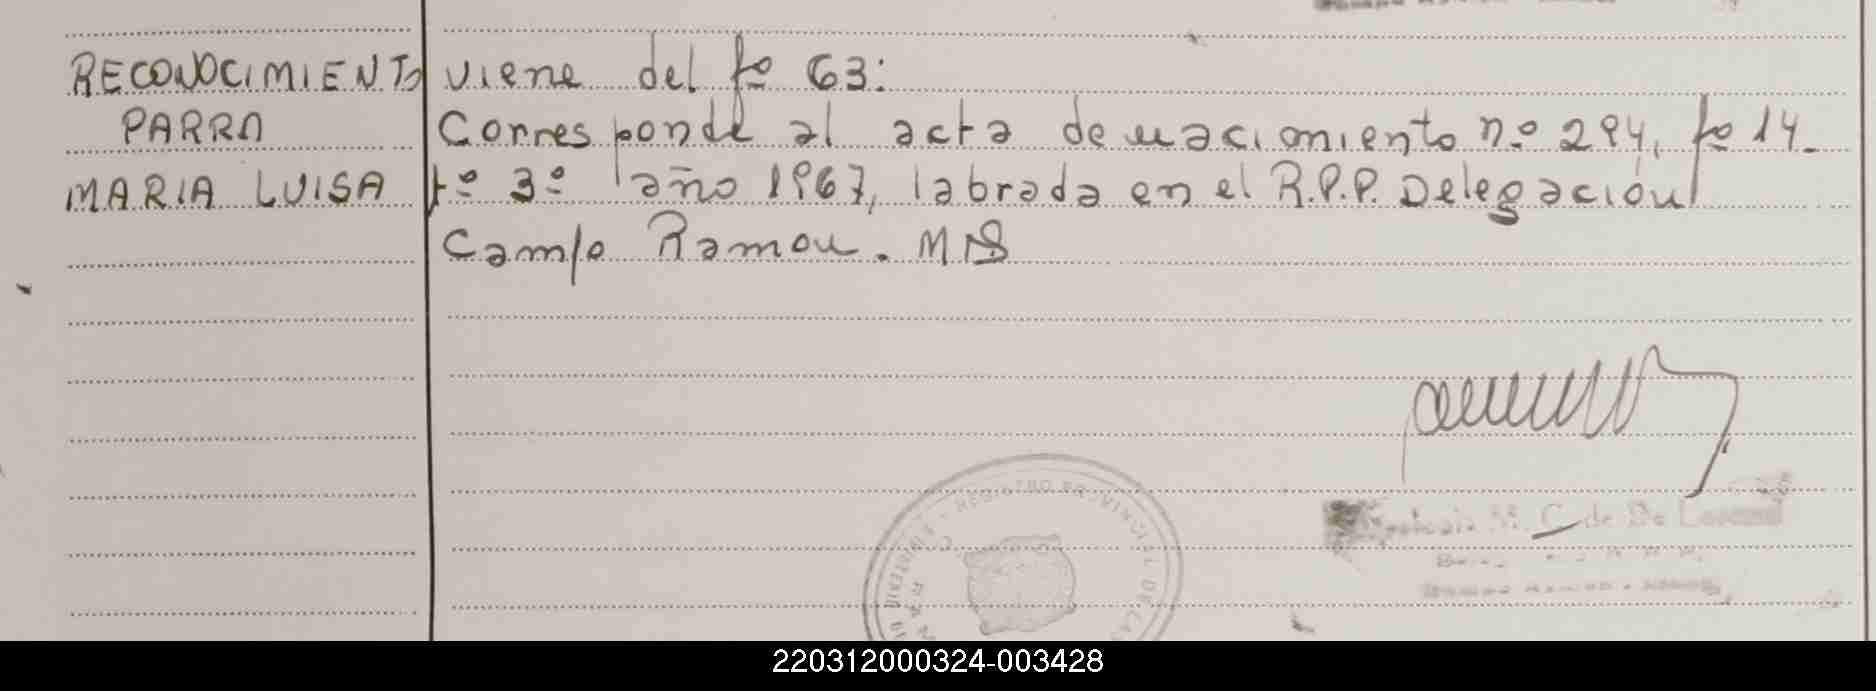 RECONOCIMIENTO
PARRA
MARIA LUISA
viene del fº 63:
Corresponde al acta de nacimiento nº 294, fº 14.
tº 3º año 1967, labrada en el R.P.P. Delegación
Campo Ramon. MNS
REGISTRO PROVINCIAL DE LAS
C. de De
220312000324-003428